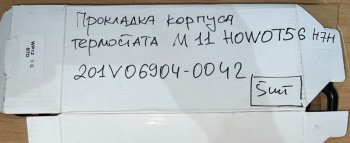 Прокладка корпуса
термостата М 11 HOWOT5G H7H
201V06904-0042
5шт